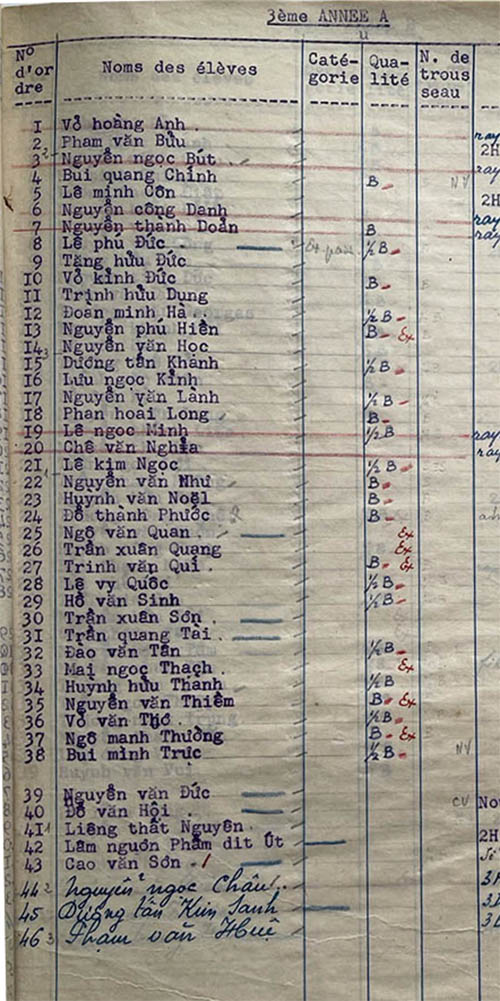 3ème ANNEE A
N° d'or dre Noms des élèves Caté- gorie Qua- lité N. de trous seau
1 Vỏ hoàng Anh .
2 Phạm văn Bửu ray
3 Nguyễn ngọc Bút . 2H
4 Bui quang Chỉnh B - NV ray
5 Lê minh Côn
6 Nguyễn công Danh 2H
7 Nguyễn thành Doản B ray
8 Lê phú Đức . ½ B - ray
9 Tăng hửu Đức
10 Vỏ kỉnh Đức B -
11 Trịnh hửu Dung
12 Đoàn minh Hà . ½ B -
13 Nguyễn phú Hiển B - Ex
14 3 Nguyễn văn Học
15 Dương tấn Khánh ½ B -
16 Lưu ngọc Kỉnh
17 Nguyễn văn Lành ½ B -
18 Phan hoài Long B -
19 Lê ngọc Minh ½ B ray
20 Chê văn Nghỉa ray
21 Lê kim Ngọc ½ B -
22 Nguyễn văn Như B -
23 Huỳnh văn Noël B -
24 Đỗ thành Phước B -
25 Ngô văn Quan . Ex
26 Trần xuân Quang Ex
27 Trinh văn Quí . B - Ex
28 Lê vy Quốc ½ B -
29 Hồ văn Sinh ½ B -
30 Trần xuân Sơn .
31 Trần quang Tài .
32 Đào văn Tân ½ B -
33 Mai ngọc Thạch . Ex
34 Huỳnh hửu Thanh ½ B
35 Nguyễn văn Thiêm B - Ex
36 Vỏ văn Thơ . ½ B -
37 Ngô manh Thường B - Ex
38 Bui minh Trực ½ B - NV
39 Nguyễn văn Đức CV Nov
40 Đỗ văn Hội .
41 1 Liêng thất Nguyên .
42 Lâm nguơn Phẩm dit Út 2H
43 Cao văn Sơn .
44 2 Nguyễn ngọc Châu .
45 Dương tấn Kim Sanh
46 3 Phạm văn Huệ